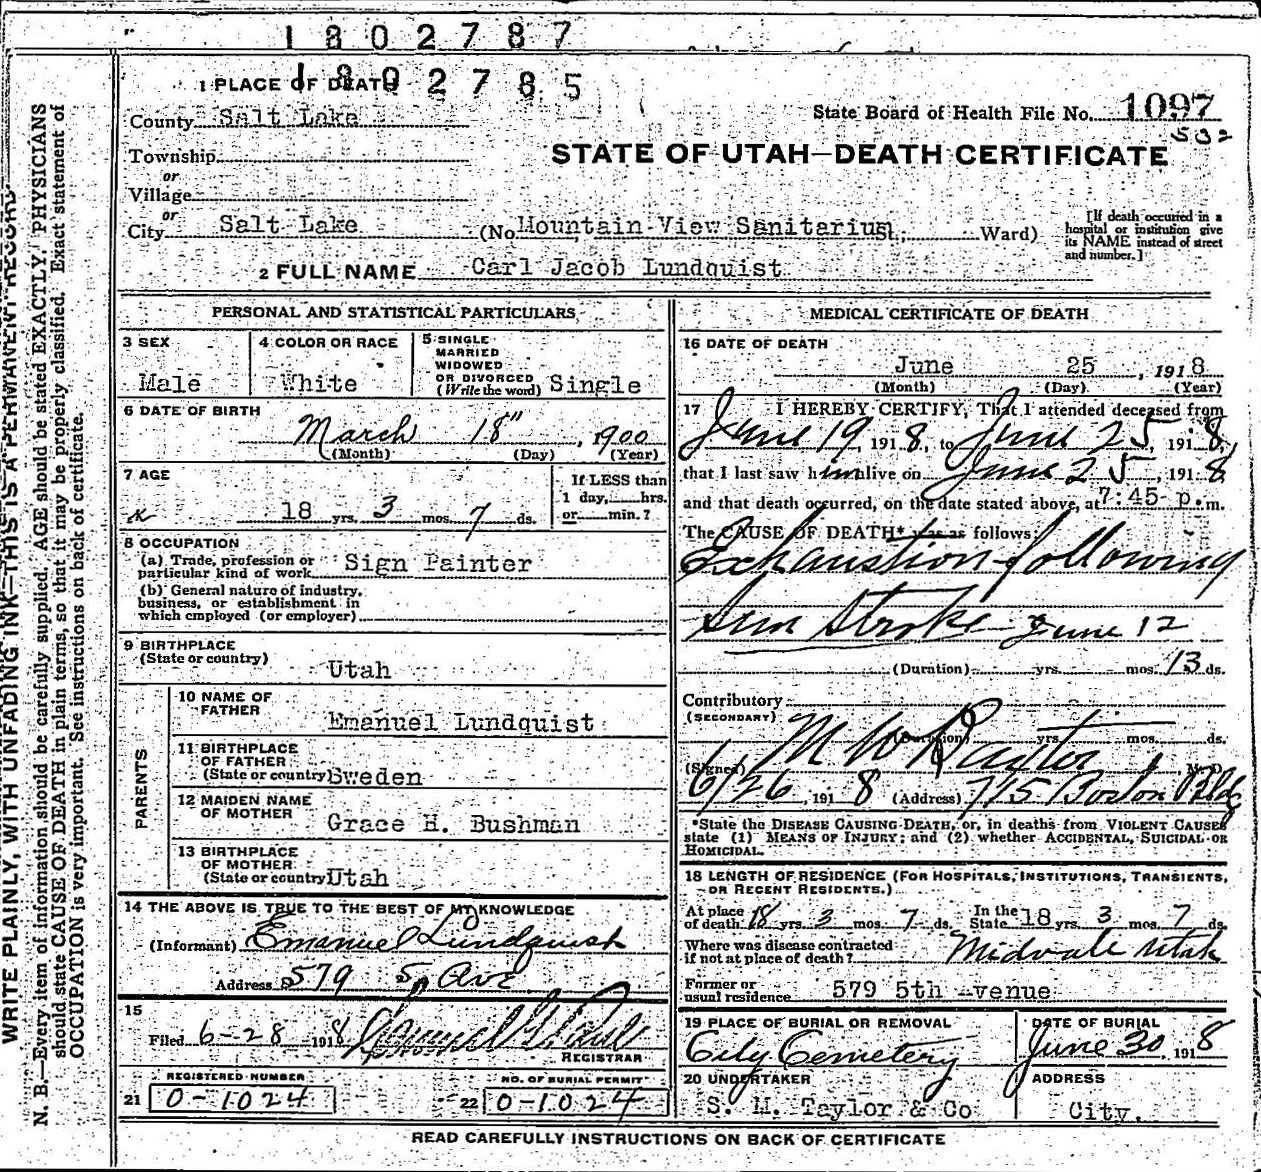 1802787
1802785
1 PLACE OF DEATH
State Board of Health File No. 1097
502
County Salt Lake
STATE OF UTAH—DEATH CERTIFICATE
Township
or
Village
or
City Salt Lake (No. Mountain View Sanitarium St.; Ward)
[If death occurred in a hospital or institution give its NAME instead of street and number.]
2 FULL NAME Carl Jacob Lundquist
PERSONAL AND STATISTICAL PARTICULARS
3 SEX
Male
4 COLOR OR RACE
White
5 SINGLE
MARRIED
WIDOWED
OR DIVORCED
(Write the word) Single
6 DATE OF BIRTH
March 18", 1900
(Month) (Day) (Year)
7 AGE
18 yrs. 3 mos. 7 ds.
If LESS than
1 day, hrs.
or min.?
8 OCCUPATION
(a) Trade, profession or
particular kind of work Sign Painter
(b) General nature of industry,
business, or establishment in
which employed (or employer)
9 BIRTHPLACE
(State or country)
Utah
PARENTS
10 NAME OF
FATHER
Emanuel Lundquist
11 BIRTHPLACE
OF FATHER
(State or country) Sweden
12 MAIDEN NAME
OF MOTHER
Grace H. Bushman
13 BIRTHPLACE
OF MOTHER
(State or country) Utah
14 THE ABOVE IS TRUE TO THE BEST OF MY KNOWLEDGE
(Informant) Emanuel Lundquist
Address 579 5th Ave
15
Filed 6-28 1918
REGISTRAR
REGISTERED NUMBER
21 0-1024
NO. OF BURIAL PERMIT
22 0-1024
MEDICAL CERTIFICATE OF DEATH
16 DATE OF DEATH
June 25, 1918
(Month) (Day) (Year)
17 I HEREBY CERTIFY, That I attended deceased from
June 19 1918, to June 25, 1918,
that I last saw him alive on June 25, 1918
and that death occurred, on the date stated above, at 7:45 p.m.
The CAUSE OF DEATH* was as follows:
Exhaustion following
Sun Stroke June 12
(Duration) yrs. mos. 13 ds.
Contributory
(SECONDARY)
(Duration) yrs. mos. ds.
(Signed) M. D.
6/26, 1918 (Address) 715 Boston Bldg
*State the DISEASE CAUSING DEATH, or, in deaths from VIOLENT CAUSES
state (1) MEANS OF INJURY; and (2) whether ACCIDENTAL, SUICIDAL OR
HOMICIDAL.
18 LENGTH OF RESIDENCE (FOR HOSPITALS, INSTITUTIONS, TRANSIENTS,
OR RECENT RESIDENTS.)
At place
of death 18 yrs. 3 mos. 7 ds. In the State 18 yrs. 3 mos. 7 ds.
Where was disease contracted
if not at place of death? Midvale Utah
Former or
usual residence 579 5th Avenue
19 PLACE OF BURIAL OR REMOVAL
City Cemetery
DATE OF BURIAL
June 30, 1918
20 UNDERTAKER
S. M. Taylor & Co
ADDRESS
City.
READ CAREFULLY INSTRUCTIONS ON BACK OF CERTIFICATE
WRITE PLAINLY, WITH UNFADING INK—THIS IS A PERMANENT RECORD
N. B.—Every item of information should be carefully supplied. AGE should be stated EXACTLY. PHYSICIANS
should state CAUSE OF DEATH in plain terms, so that it may be properly classified. Exact statement of
OCCUPATION is very important. See instructions on back of certificate.